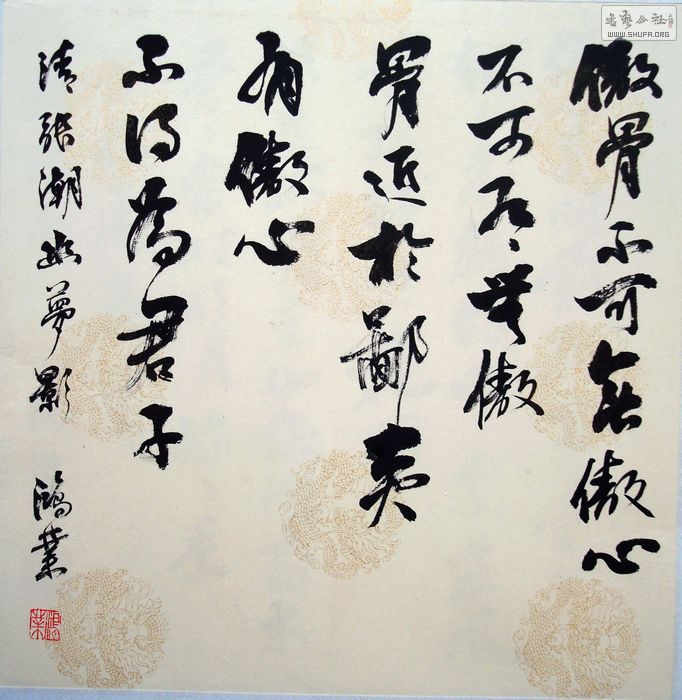 書藝公社
WWW.SHUFA.ORG
傲骨不可無傲心
不可有無傲
骨近於鄙夫
有傲心
不得為君子
清張潮幽夢影 鴻業
鴻業